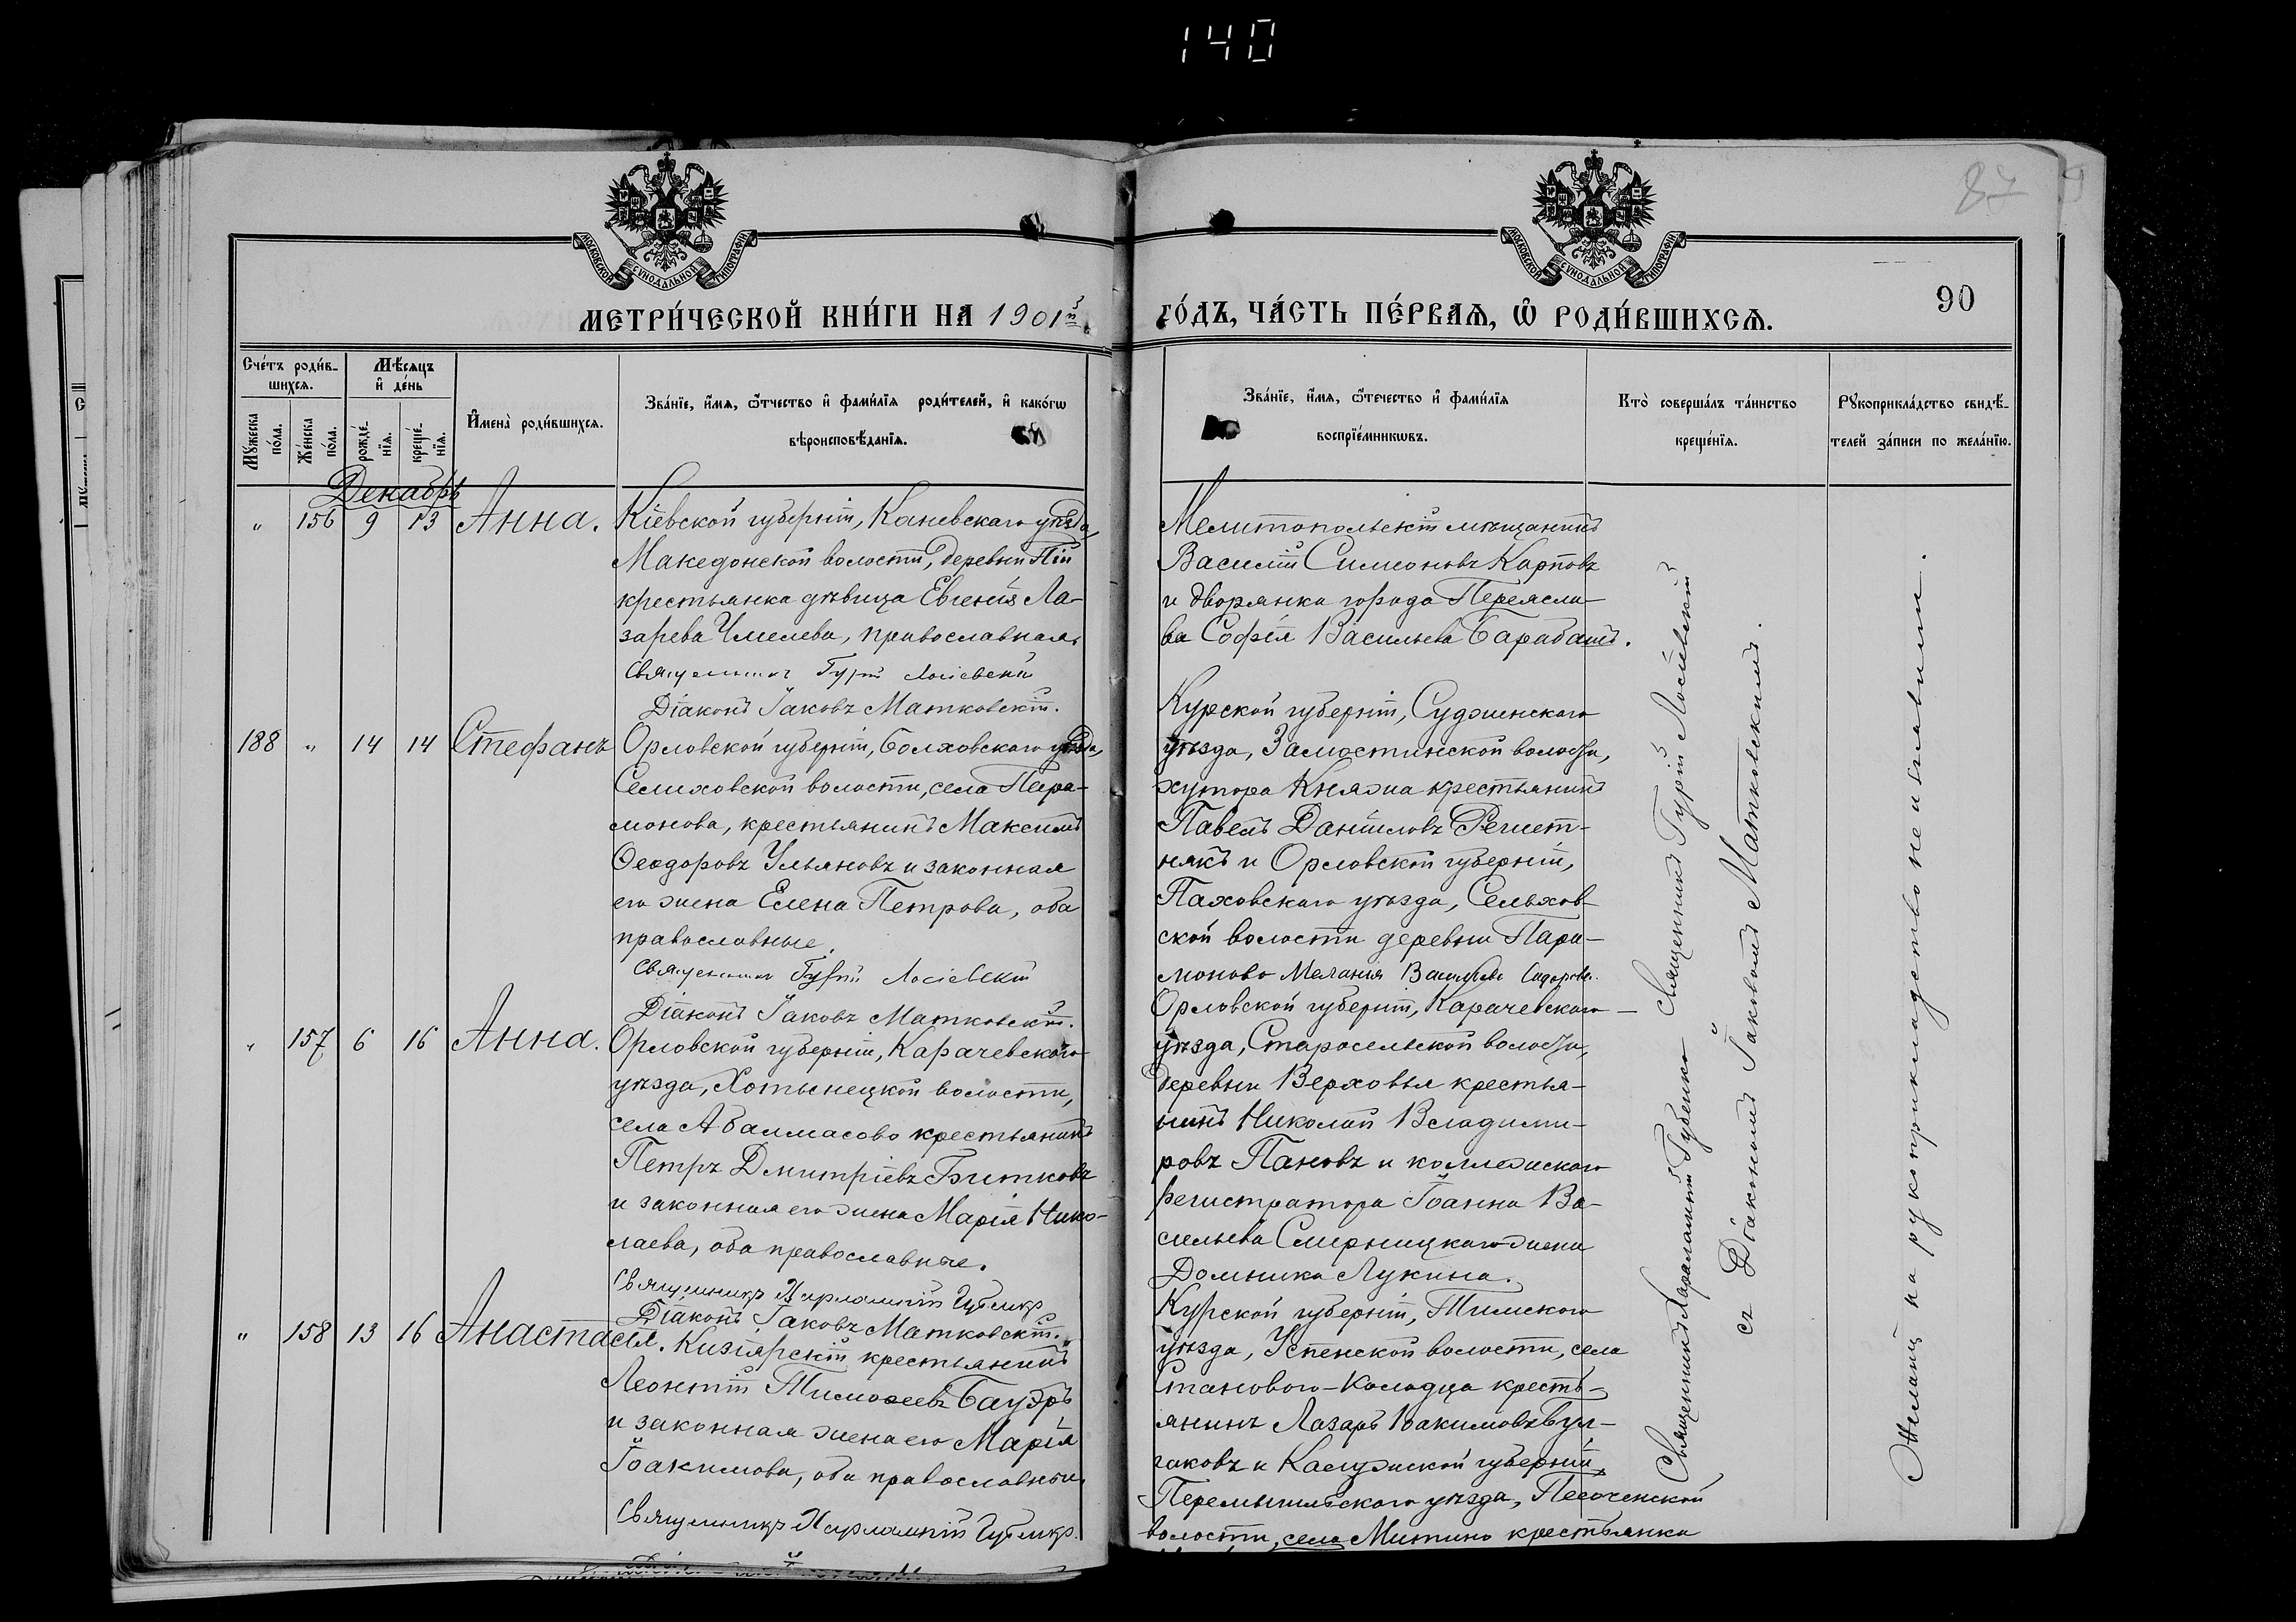 140
87
90
МОСКОВСКОЙ СѴНОДАЛЬНОЙ ТИПОГРАФІИ
МОСКОВСКОЙ СѴНОДАЛЬНОЙ ТИПОГРАФІИ
МЕТРИ́ЧЕСКОЙ КНИ́ГИ НА 1901й
ГО́ДЪ, ЧА́СТЬ ПЕ́РВАѦ, Ѡ҆ РОДИ́ВШИХСѦ.
Сче́тъ роди́в-
шихсѧ.
Мꙋ́жеска
по́ла.
Же́нска
по́ла.
Мѣ́сѧцъ
и҆ де́нь
рожде́-
нїѧ.
креще́-
нїѧ.
И҆мена̀ роди́вшихсѧ.
Зва́нїе, и҆́мѧ, ѻ҆́тчество и҆ фами́лїѧ роди́телей, и҆ како́гѡ
вѣроисповѣ́данїѧ.
Зва́нїе, и҆́мѧ, ѻ҆́течество и҆ фами́лїѧ
воспрїе́мникѡвъ.
Кто̀ соверша́лъ та́инство
креще́нїѧ.
Рꙋкоприкла́дство свидѣ́-
телей за́писи по жела́нїю.
Декабрь
" 156 9 13 Анна.
Кіевской губерніи, Каневскаго уѣзда,
Македонской волости, деревни Піи
крестьянка дѣвица Евгенія Ла-
зарева Чмелева, православная.
Священникъ Гурій Лосіевскій
Діаконъ Іаковъ Матковскій.
Мелитопольскій мѣщанинъ
Василій Симеоновъ Карповъ
и дворянка города Переясла-
ва Софія Васильева Барабашъ.
188 " 14 14 Стефанъ
Орловской губерніи, Болховскаго уѣзда,
Селиховской волости, села Пара-
монова, крестьянинъ Максимъ
Ѳеодоровъ Ульяновъ и законная
его жена Елена Петрова, оба
православные.
Священникъ Гурій Лосіевскій
Діаконъ Іаковъ Матковскій.
Курской губерніи, Суджинскаго
уѣзда, Замостинской волости,
хутора Княжа крестьянинъ
Павелъ Даниловъ Решет-
някъ и Орловской губерніи,
Паховскаго уѣзда, Сельхов-
ской волости деревни Пара-
моново Меланія Васильева Сидорова.
" 157 6 16 Анна.
Орловской губерніи, Карачевскаго
уѣзда, Хотынецкой волости,
села Абалмасово крестьянинъ
Петръ Дмитріевъ Битковъ
и законная его жена Марія Нико-
лаева, оба православные.
Священникъ Харлампій Губенко
Діаконъ Іаковъ Матковскій.
Орловской губерніи, Карачевскаго
уѣзда, Старосельской волости,
деревни Верховья крестья-
нинъ Николай Владими-
ровъ Пановъ и коллежскаго
регистратора Іоанна Ва-
сильева Смерницкаго жена
Домника Лукина.
" 158 13 16 Анастасія.
Кизіярскій крестьянинъ
Леонтій Тимоѳеевъ Бауэръ
и законная жена его Марія
Іоакимова, оба православные
Священникъ Харлампій Губенко.
Курской губерніи, Тимскаго
уѣзда, Успенской волости, села
Становаго-Колодца кресть-
янинъ Лазарь Іоакимовъ Бул-
гаковъ и Калужской губерніи,
Перемышльскаго уѣзда, Песоченской
волости, села Митино крестьянка
Священникъ Харлампій Губенко священникъ Гурій Лосіевскій
съ Діакономъ Іаковомъ Матковскимъ.
Желающ на рукоприкладство не явились.